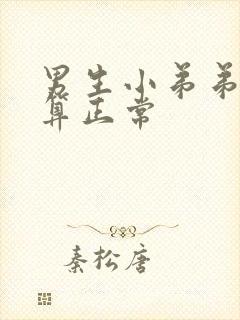 男生小弟弟
算正常
秦松唐